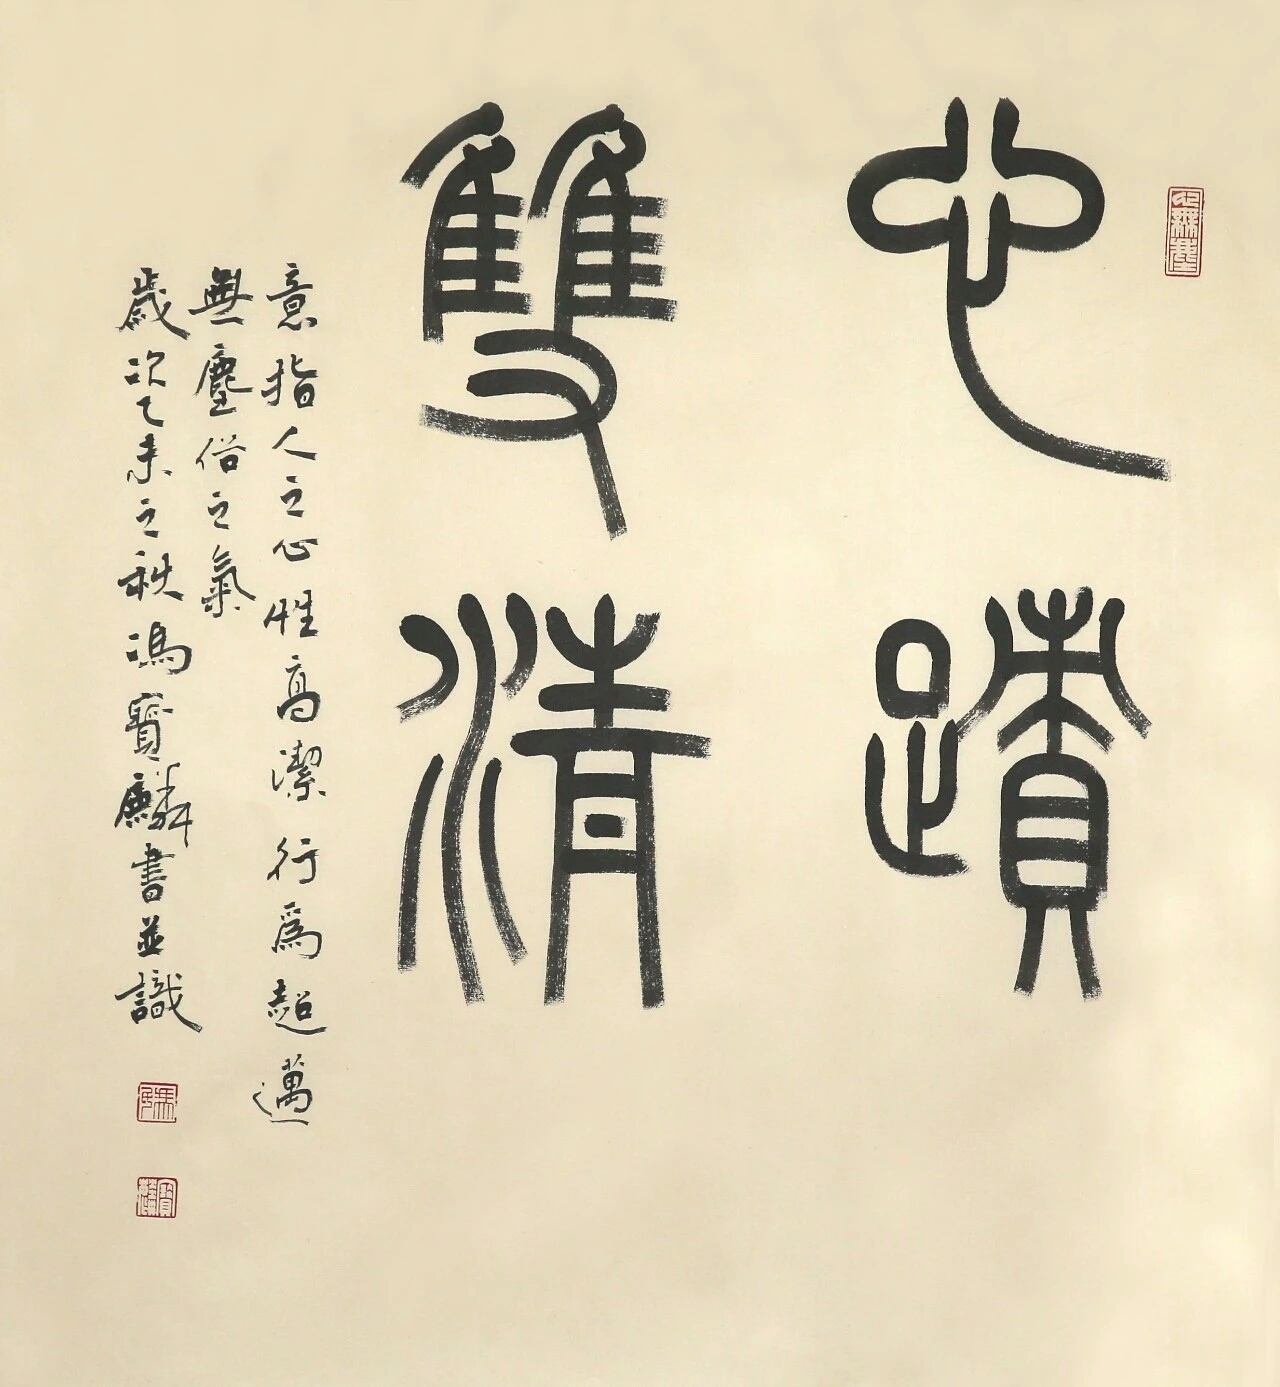 心無塵
心蹟
雙清
意指人之心性高潔行爲超邁
無塵俗之氣
歲次乙未之秋馮寶麟書並識
寶麟